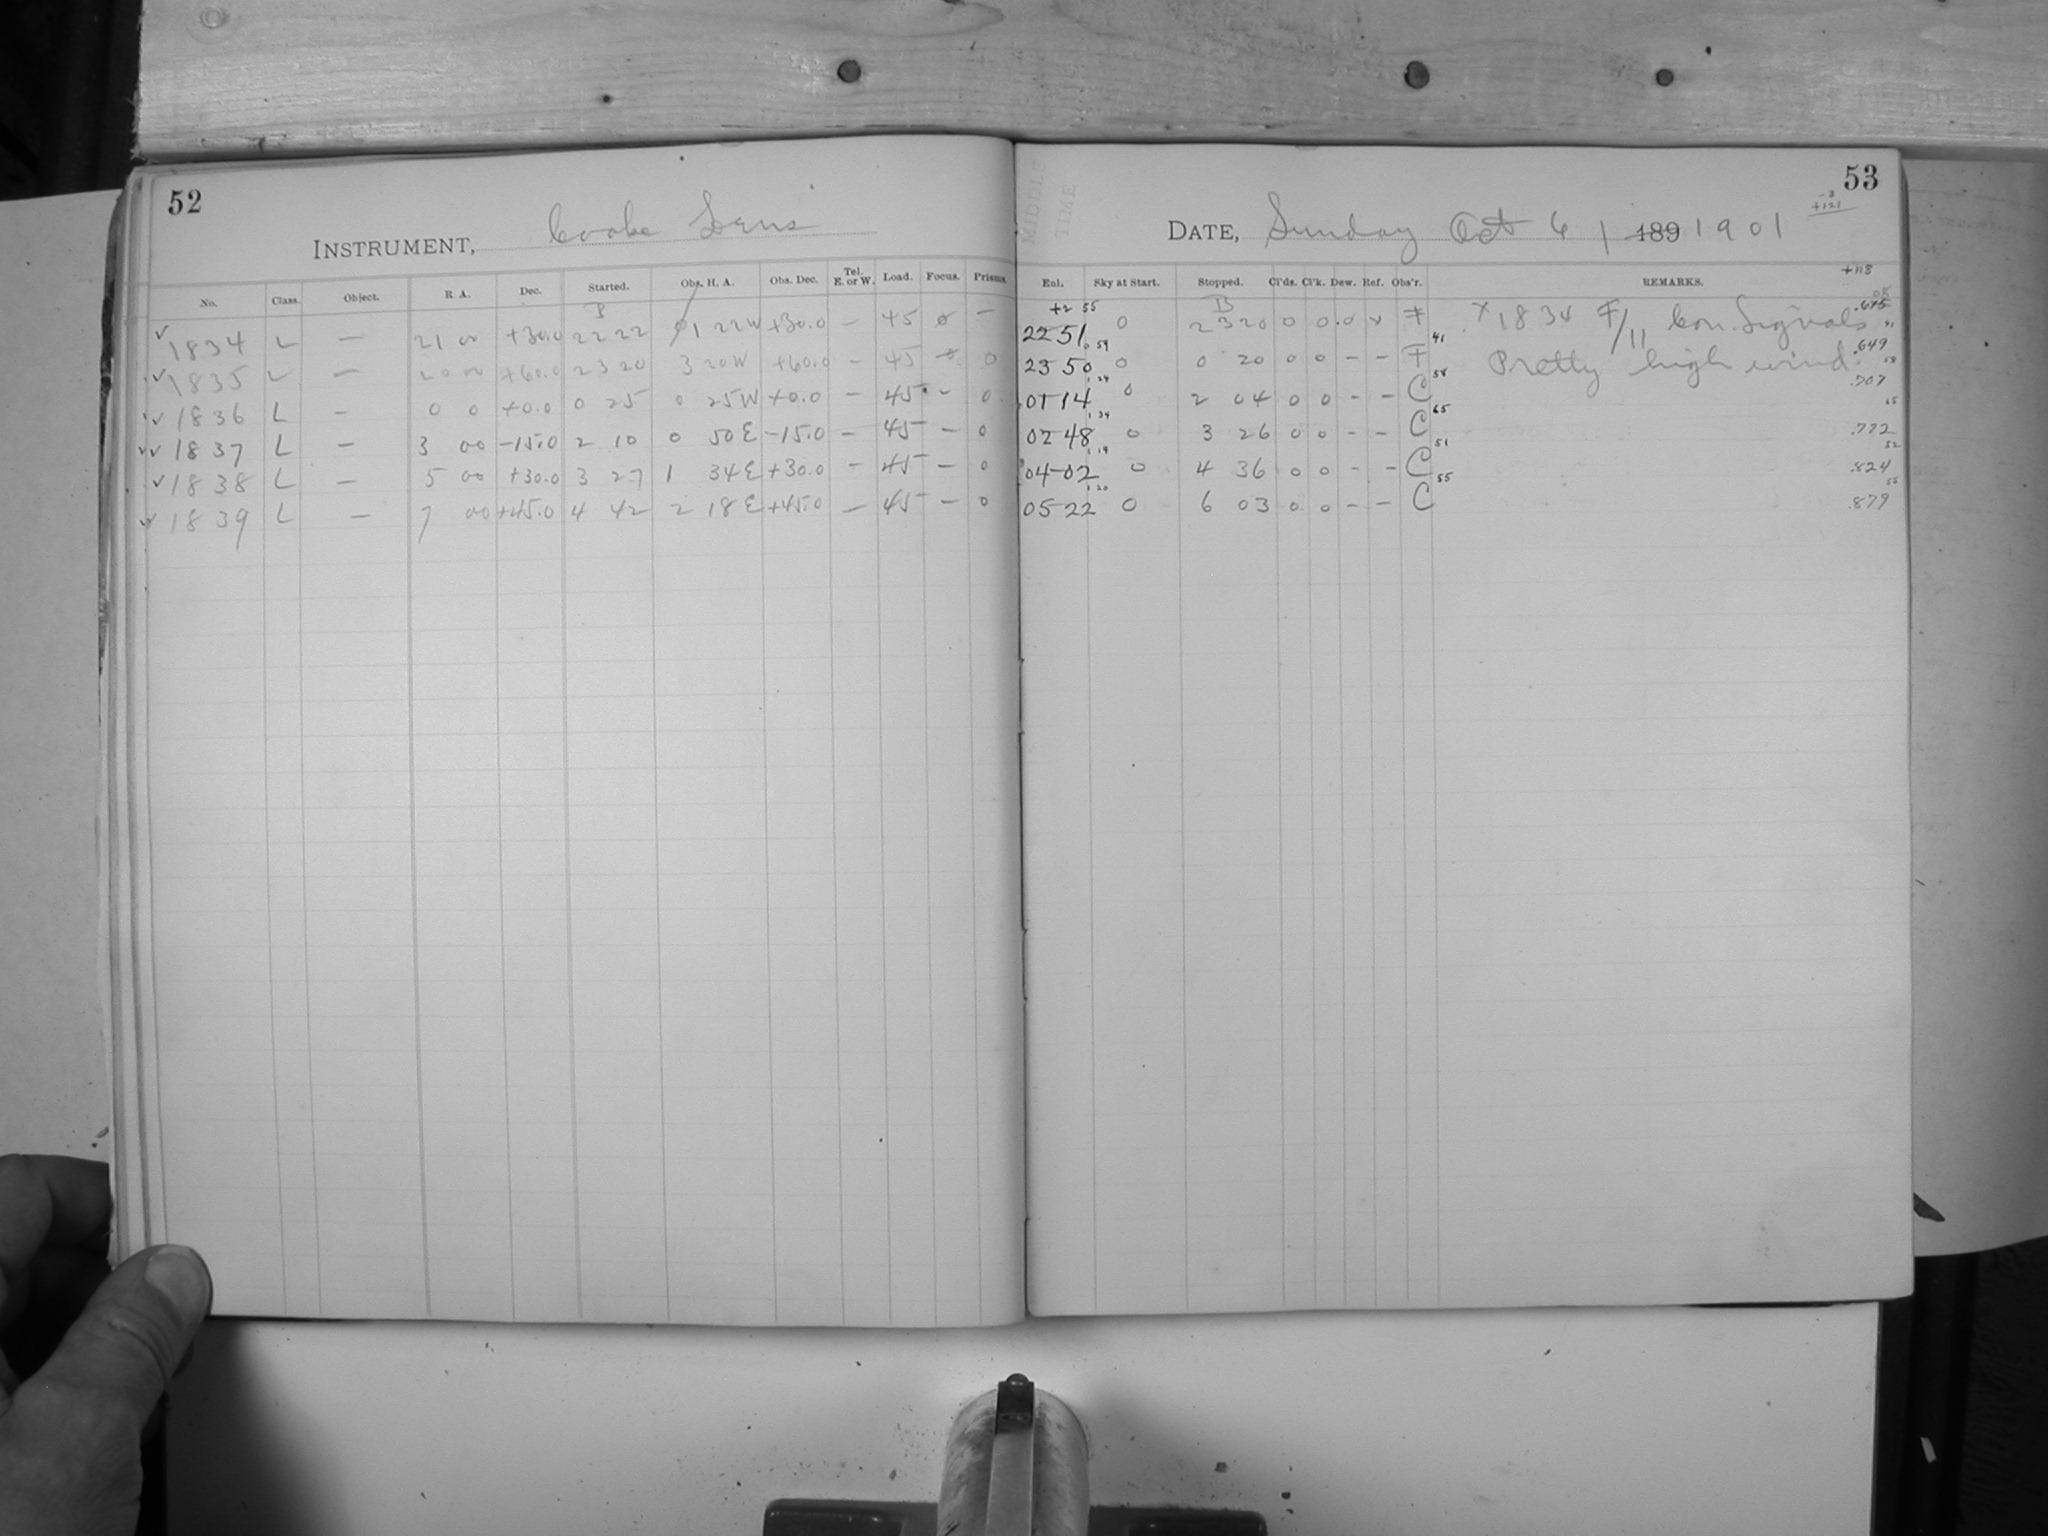 52
INSTRUMENT, Cooke Lens
No. Class. Object. R A. Dec. Started. Obs. H. A. Obs. Dec. Tel. E. or W. Load. Focus. Prisms.
✓ 1834 L — 21 00 +30.0 22 22 01 22W +30.0 — 45 0 —
✓ 1835 L — 20 00 +60.0 23 20 3 20W +60.0 — 45 0
✓ 1836 L — 0 0 +0.0 0 25 0 25W +0.0 — 45 — 0
✓✓ 1837 L — 3 00 -15.0 2 10 0 50E -15.0 — 45 — 0
✓ 1838 L — 5 00 +30.0 3 27 1 34E +30.0 — 45 — 0
✓ 1839 L — 7 00 +45.0 4 42 2 18E +45.0 — 45 — 0
MIDDLE TIME
53
+121
DATE, Sunday Oct 6 189 1901
+118
Enl. Sky at Start. Stopped. Cl'ds. Cl'k. Dew. Ref. Obs'r. REMARKS.
+2 55 B
22 51 0 23 20 0 0.0 x F x 1834 F/11 Con. Signals
59 41 .649
23 50 0 0 20 0 0 — — F Pretty high wind
1 24 58 .707
01 14 0 2 04 0 0 — — C
1 34 65 65
02 48 0 3 26 0 0 — — C .772
1 14 51 52
04-02 0 4 36 0 0 — — C .824
1 20 55 55
05 22 0 6 03 0 0 — — C .879